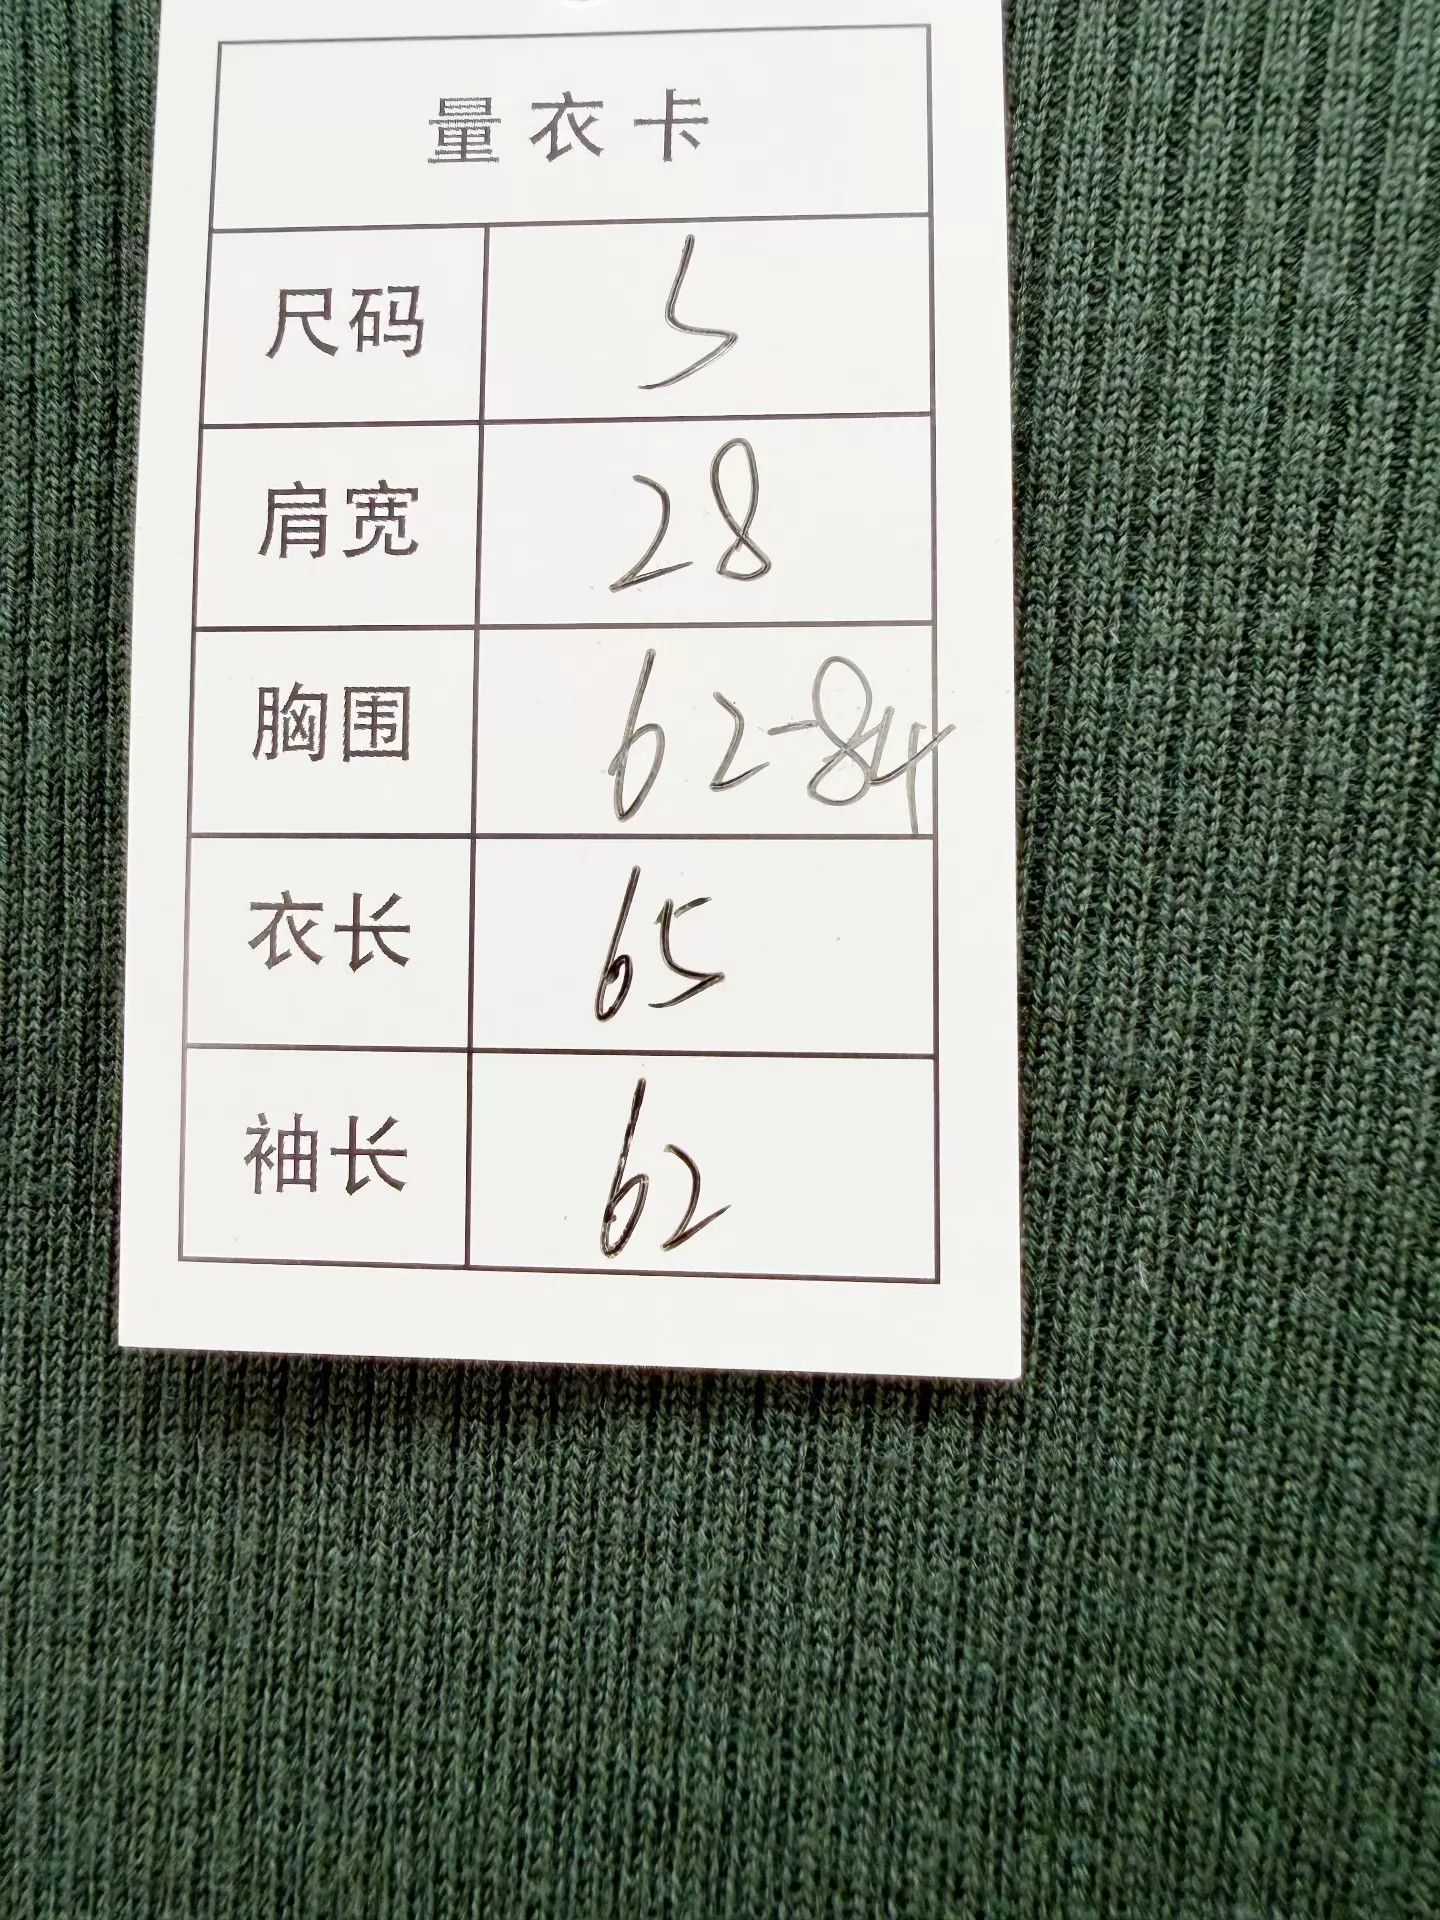 量衣卡
尺码 S
肩宽 28
胸围 62-84
衣长 65
袖长 62